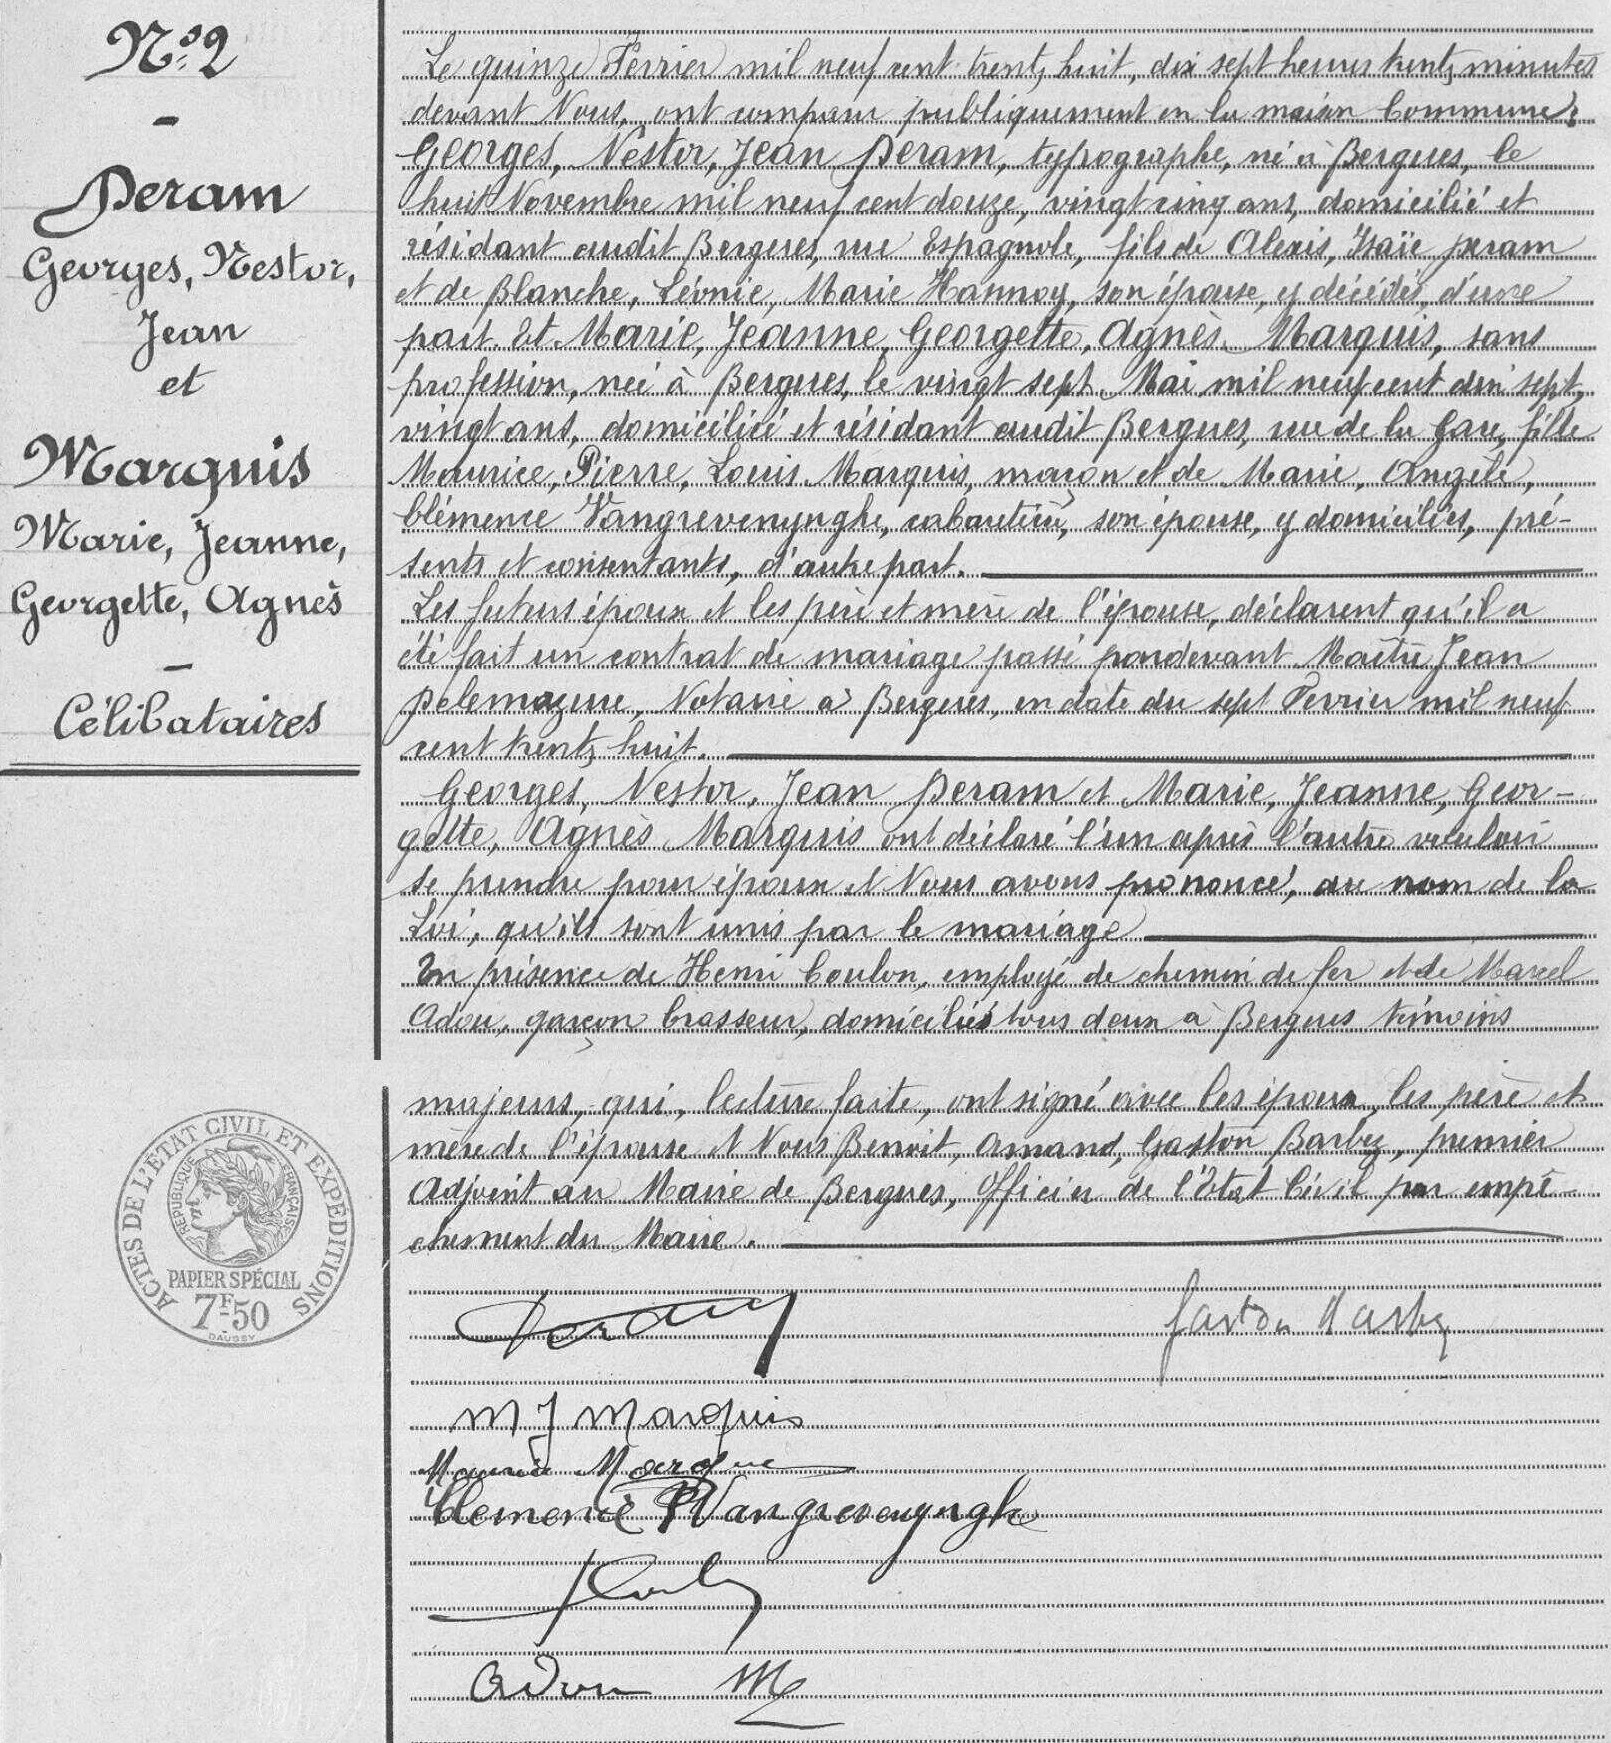 N°: 2
Deram
Georges, Nestor,
Jean
et
Marquis
Marie, Jeanne,
Georgette, Agnès
Célibataires
Le quinze Février mil neuf cent trente huit, dix sept heures trente minutes
devant Nous, ont comparu publiquement en la maison Commune:
Georges, Nestor, Jean Deram, typographe, né à Bergues, le
huit Novembre mil neuf cent douze, vingt cinq ans, domicilié et
résidant audit Bergues, rue Espagnole, fils de Alexis, Isaïe Deram
et de Blanche, Léonie, Marie Hannoy, son épouse, y décédés, d'une
part. Et Marie, Jeanne, Georgette, Agnès Marquis, sans
profession, née à Bergues, le vingt sept Mai mil neuf cent dix sept,
vingt ans, domiciliée et résidant audit Bergues, rue de la Gare, fille
Maurice, Pierre, Louis Marquis, maçon et de Marie, Angèle,
Clémence Vangrevenynghe, cabaretière, son épouse, y domiciliés, pré-
sents et consentants, d'autre part.
Les futurs époux et les père et mère de l'épouse, déclarent qu'il a
été fait un contrat de mariage passé pardevant Maître Jean
Delemazure, Notaire à Bergues, en date du sept Février mil neuf
cent trente huit.
Georges, Nestor, Jean Deram et Marie, Jeanne, Geor-
gette, Agnès Marquis ont déclaré l'un après l'autre vouloir
se prendre pour époux et Nous avons prononcé, au nom de la
Loi, qu'ils sont unis par le mariage
En présence de Henri Coulon, employé de chemin de fer et de Marcel
Adou, garçon brasseur, domiciliés tous deux à Bergues témoins
majeurs, qui, lecture faite, ont signé avec les époux, les père et
mère de l'épouse et Nous Benoit, Amand, Gaston Barbez, premier
Adjoint au Maire de Bergues, Officier de l'Etat Civil par empê-
chement du Maire.
ACTES DE L'ÉTAT CIVIL ET EXPÉDITIONS
RÉPUBLIQUE FRANÇAISE
PAPIER SPÉCIAL
7F50
DAUSSY
Deram
Gaston Barbez
M J Marquis
Maurice Marquis
Clemence Vangrevenynghe
Adou M